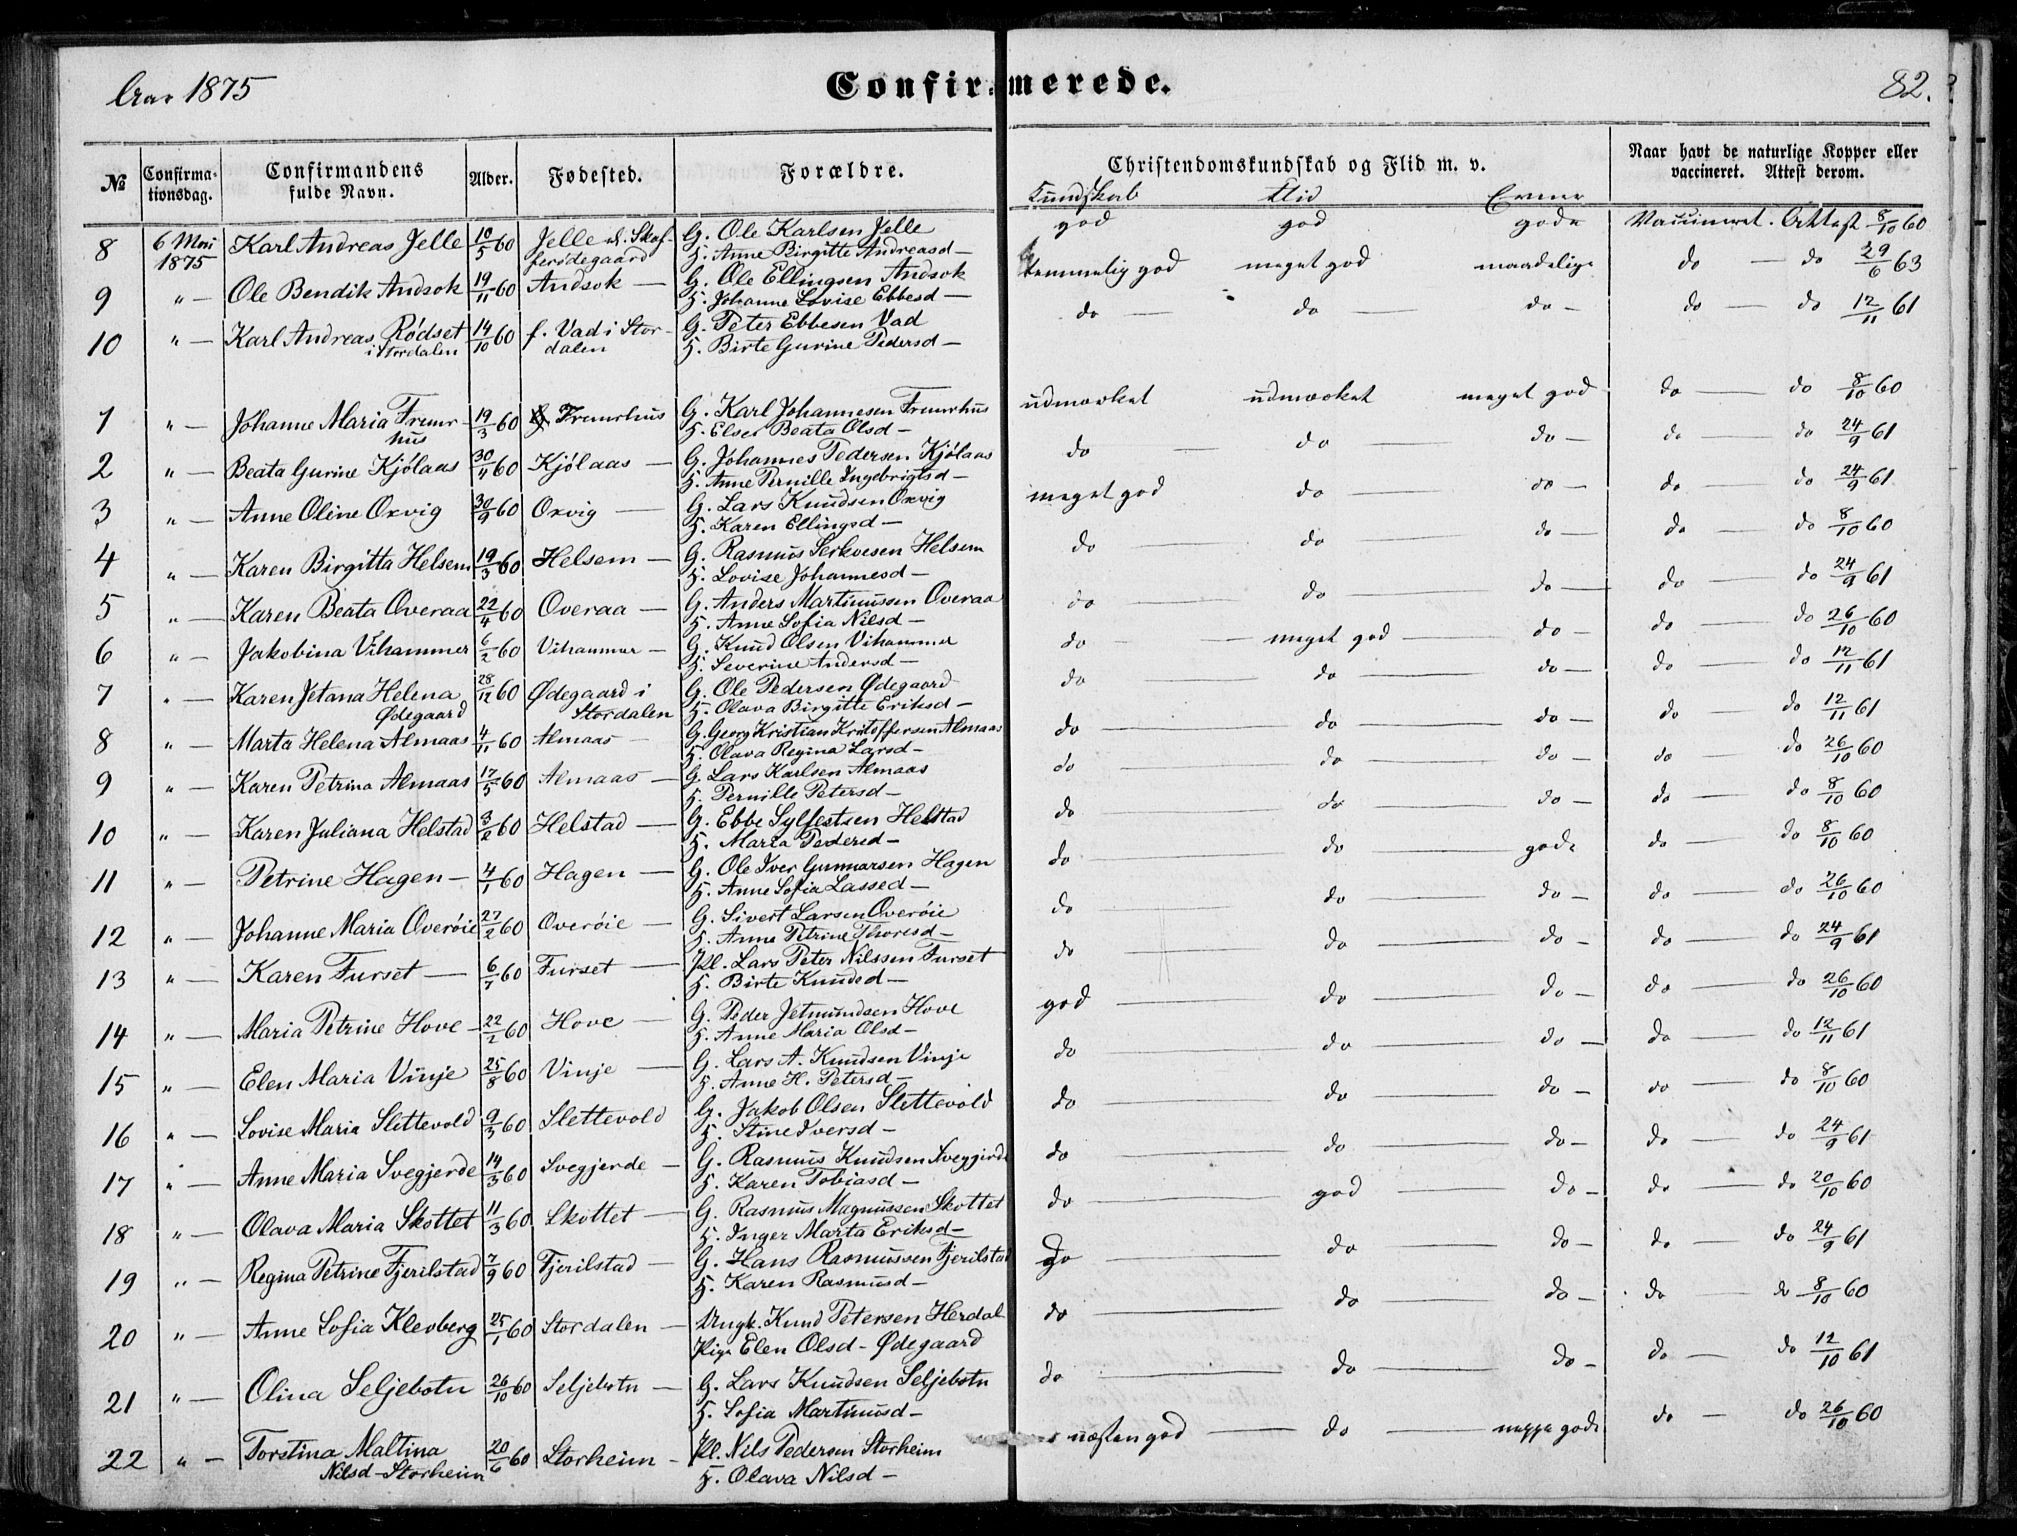 Aar 1875 Confirmerede. 82.
№ Confirmationsdag. Confirmandens fulde Navn. Alder. Fødested. Forældre. Christendomskundskab og Flid m. v. Naar havt de naturlige Kopper eller vaccineret. Attest derom.
Kundskab Flid Evner
8 6 Mai 1875 Karl Andreas Jelle 10/5 60 Jelle G. Ole Karlsen Jelle H. Anne Birgitte Andreasd – god god gode Vaccineret. Attest 8/10 60
9 " – Ole Bendik Andsok 19/11 60 Andsok – G. Ole Ellingsen Andsok H. Johanne Lovise Ebbesd – temmelig god meget god maadelige do – do 29/6 63
10 " – Karl Andreas Rødset i Stordalen 14/10 60 f. Vad i Stordalen G. Peter Ebbesen Vad H. Birte Gurine Pedersd – do – do – do – do – do 12/11 61
1 " – Johanne Maria Fremrhus 19/3 60 Fremrhus G. Karl Johannesen Fremrhus H. Else Beata Olsd – udmærket udmærket meget god do – do 8/10 60
2 " – Beata Gurine Kjølaas 30/11 60 Kjølaas – G. Johannes Pedersen Kjølaas H. Anne Pernille Ingebrigtsd – do – do – do – do – do 24/9 61
3 " – Anne Oline Oxvig 30/9 60 Oxvig – G. Lars Knudsen Oxvig H. Karen Ellingsd – meget god do – do – do – do 24/9 61
4 " – Karen Birgitta Helsem 19/3 60 Helsem – G. Rasmus Serkvesen Helsem H. Lovise Johannesd – do – do – do – do – do 8/10 60
5 " – Karen Beata Overaa 22/4 60 Overaa – G. Anders Martinussen Overaa H. Anne Sofia Nilsd – do – do – do – do – do 24/9 61
6 " – Jakobina Vihammer 6/2 60 Vihammer – G. Knud Olsen Vihammer H. Severine Andersd – do – meget god – do – do – do 26/10 60
7 " – Karen Jetana Helena Ødegaard 28/12 60 Ødegaard i Stordalen G. Ole Pedersen Ødegaard H. Olava Birgitte Eriksd – do – do – do – do – do 12/11 61
8 " – Marta Helena Almaas 4/11 60 Almaas – G. Georg Kristian Kristoffersen Almaas H. Olava Regina Larsd – do – do – do – do – do 12/11 61
9 " – Karen Petrina Almaas 17/5 60 Almaas – G. Lars Karlsen Almaas H. Pernille Petersd – do – do – do – do – do 26/10 60
10 " – Karen Juliana Helstad 3/2 60 Helstad – G. Ebbe Sylfestsen Helstad H. Maria Pedersd – do – do – do – do – do 8/10 60
11 " – Petrine Hagen – 4/1 60 Hagen – G. Ole Iver Gunnarsen Hagen H. Anne Sofia Lassed – do – do – gode do – do 8/10 60
12 " – Johanne Maria Overøie 27/2 60 Overøie – G. Sivert Larsen Overøie H. Anne Petrine Thoresd – do – do – do – do – do 26/10 60
13 " – Karen Furset – 6/7 60 Furset – Kl. Lars Peter Nilssen Furset H. Birte Knudsd – do – do – do – do – do 24/9 61
14 " – Maria Petrine Hove – 22/2 60 Hove – G. Peder Jetmundsen Hove H. Anne Maria Olsd – god – do – do – do – do 26/10 60
15 " – Elen Maria Vinje 25/8 60 Vinje – G. Lars A. Knudsen Vinje H. Anne H. Petersd – do – do – do – do – do 12/11 61
16 " – Lovise Maria Slettevold 9/3 60 Slettevold G. Jakob Olsen Slettevold H. Stine Iversd – do – do – do – do – do 8/10 60
17 " – Anne Maria Svegjerde 14/3 60 Svegjerde – G. Rasmus Knudsen Sveggjerde H. Karen Tobiasd – do – do – do – do – do 24/9 61
18 " – Olava Maria Skottet 11/3 60 Skottet – G. Rasmus Magnussen Skottet H. Inger Marta Eriksd – do – god – do – do – do 20/10 60
19 " – Regina Petrine Fjerilstad 7/9 60 Fjerilstad – G. Hans Rasmussen Fjerilstad H. Karen Rasmusd – do – do – do – do – do 24/9 61
20 " – Anne Sofia Klevberg 25/1 60 Stordalen – Ungk. Knud Petersen Herdal Pige Elen Olsd – Ødegaard do – do – do – do – do 8/10 60
21 " – Olina Seljebotn 26/10 60 Seljebotn – G. Lars Knudsen Seljebotn H. Sofia Martinusd – do – do – do – do – do 12/10 61
22 " – Torstina Maltina Nilsd – Storheim 20/6 60 Storheim – Kl. Nils Pedersen Storheim H. Olava Nilsd – næsten god – do – neppe gode do – do 26/10 60